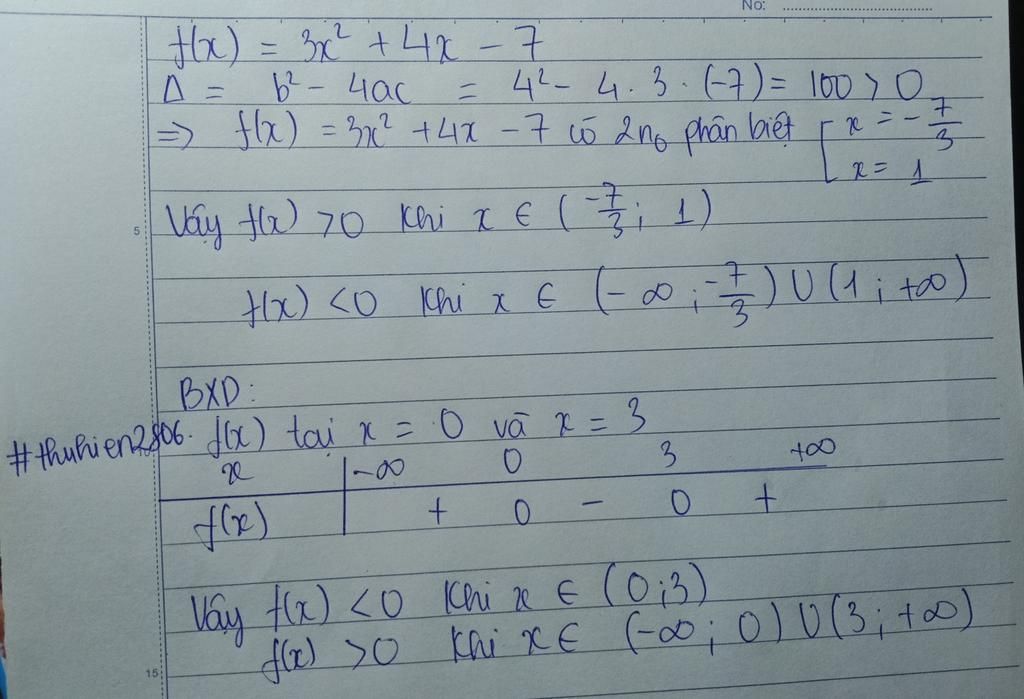 No:
f(x) = 3x² + 4x - 7
Δ = b² - 4ac = 4² - 4 . 3 . (-7) = 100 > 0
=> f(x) = 3x² + 4x - 7 có 2n₀ phân biệt [ x = -7/3
x = 1
5 Vậy f(x) > 0 khi x ∈ (-7/3 ; 1)
f(x) < 0 khi x ∈ (-∞ ; -7/3) ∪ (1 ; +∞)
BXD:
#thuhien2806. f(x) tại x = 0 và x = 3
x | -∞ 0 3 +∞
f(x) | + 0 - 0 +
Vậy f(x) < 0 khi x ∈ (0 ; 3)
15 f(x) > 0 khi x ∈ (-∞ ; 0) ∪ (3 ; +∞)